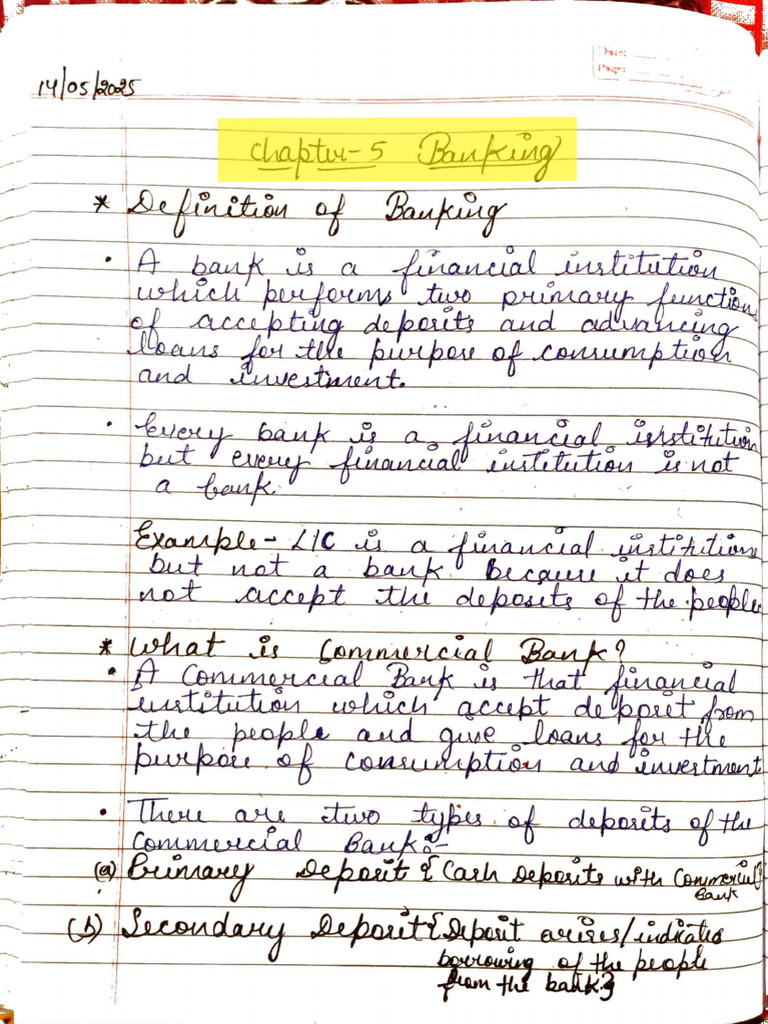 Date:
Page:
14/05/2025
Chapter-5 Banking
* Definition of Banking
• A bank is a financial institution
which performs two primary function
of accepting deposits and advancing
loans for the purpose of consumption
and investment.
• Every bank is a financial institution
but every financial institution is not
a bank.
Example- LIC is a financial institution
but not a bank because it does
not accept the deposits of the people
* What is Commercial Bank?
• A Commercial Bank is that financial
institution which accept deposit from
the people and give loans for the
purpose of consumption and investment
• There are two types of deposits of the
Commercial Bank:-
(a) Primary Deposit { Cash Deposits with Commercial
Bank
(b) Secondary Deposit { Deposit arises/indicates
borrowing of the people
from the bank }